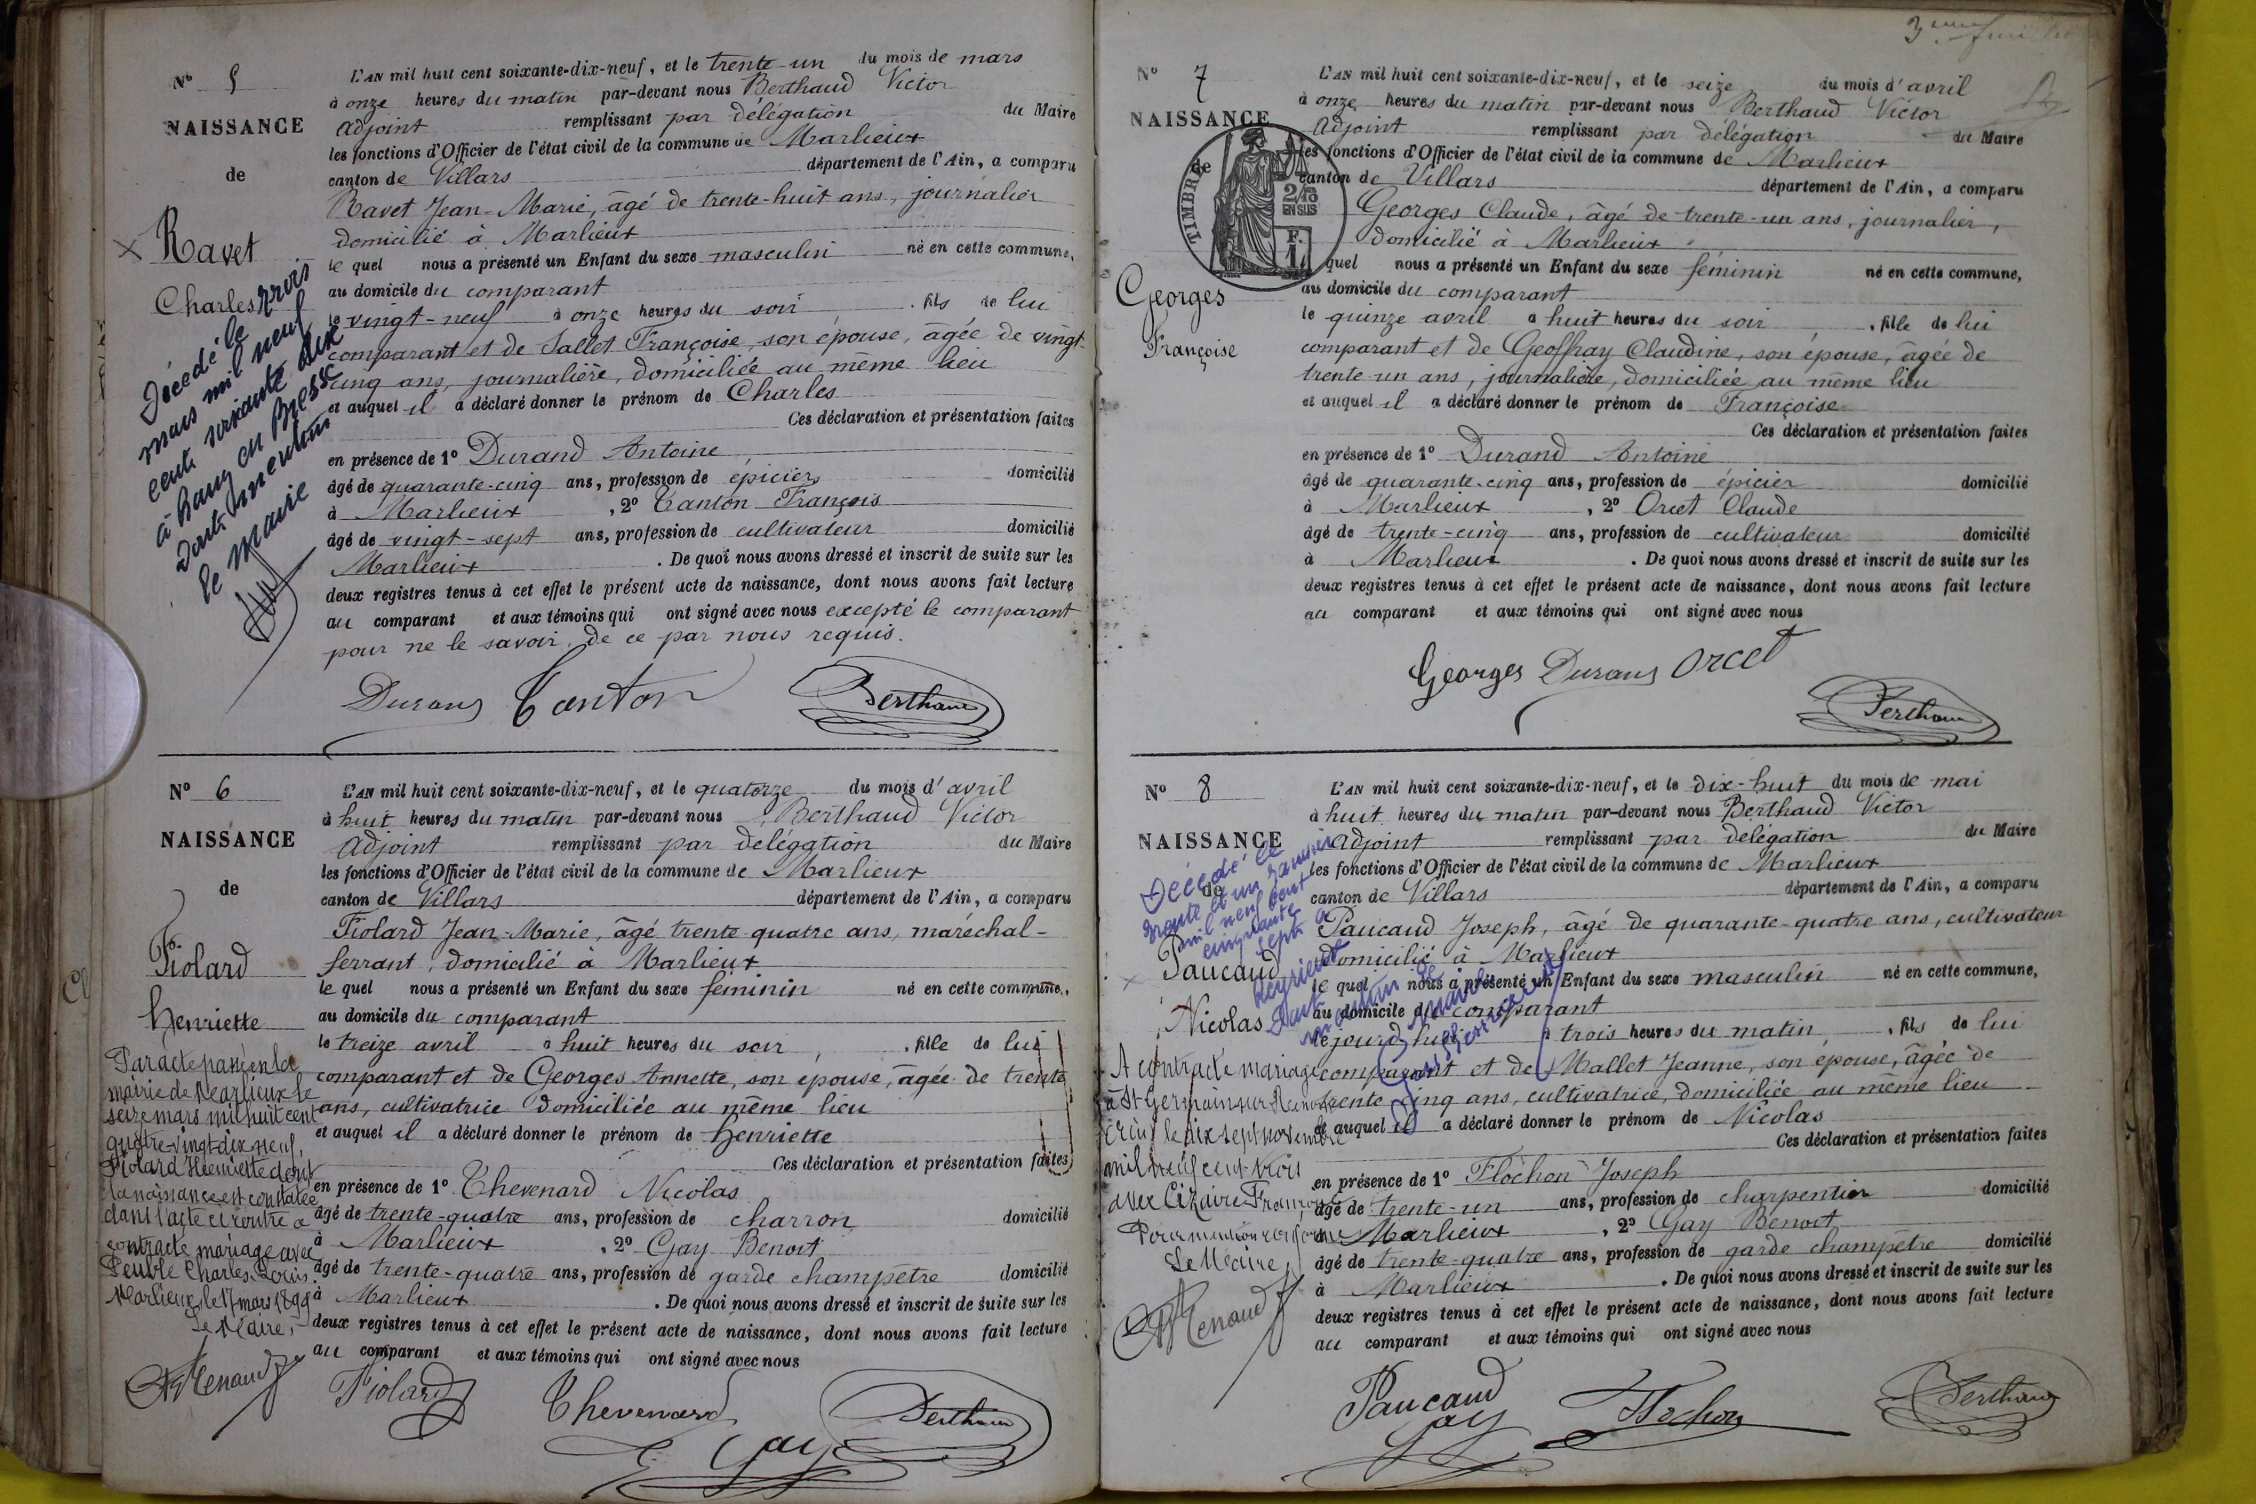 N° 5
NAISSANCE
de
Ravet
Charles
Décédé le trois
mars mil neuf
cent soixante dix
à Bourg en Bresse
Dont mention
le Maire
L'AN mil huit cent soixante-dix-neuf, et le trente-un du mois de mars
à onze heures du matin par-devant nous Berthaud Victor
Adjoint remplissant par délégation du Maire
les fonctions d'Officier de l'état civil de la commune de Marlieux
canton de Villars département de l'Ain, a comparu
Ravet Jean-Marie, âgé de trente-huit ans, journalier
domicilié à Marlieux
le quel nous a présenté un Enfant du sexe masculin né en cette commune,
au domicile du comparant
le vingt-neuf à onze heures du soir, fils de lui
comparant et de Sallet Françoise, son épouse, âgée de vingt-
cinq ans, journalière, domiciliée au même lieu
et auquel il a déclaré donner le prénom de Charles
Ces déclaration et présentation faites
en présence de 1° Durand Antoine,
âgé de quarante-cinq ans, profession de épicier, domicilié
à Marlieux, 2° Canton François
âgé de vingt-sept ans, profession de cultivateur domicilié
Marlieux. De quoi nous avons dressé et inscrit de suite sur les
deux registres tenus à cet effet le présent acte de naissance, dont nous avons fait lecture
au comparant et aux témoins qui ont signé avec nous excepté le comparant
pour ne le savoir, de ce par nous requis.
Durand Canton Berthaud
N° 6
NAISSANCE
de
Fiolard
Henriette
Par acte passé en la
mairie de Marlieux le
seize mars mil huit cent
quatre-vingt-dix-neuf,
Fiolard Henriette dont
la naissance est constatée
dans l'acte ci contre a
contracté mariage avec
Peuble Charles Louis.
Marlieux, le 17 mars 1899
Le Maire,
Renaud
L'AN mil huit cent soixante-dix-neuf, et le quatorze du mois d'avril
à huit heures du matin par-devant nous Berthaud Victor
Adjoint remplissant par délégation du Maire
les fonctions d'Officier de l'état civil de la commune de Marlieux
canton de Villars département de l'Ain, a comparu
Fiolard Jean-Marie, âgé trente-quatre ans, maréchal-
ferrant, domicilié à Marlieux
le quel nous a présenté un Enfant du sexe féminin né en cette commune,
au domicile du comparant
le treize avril à huit heures du soir, fille de lui
comparant et de Georges Annette, son épouse, âgée de trente
ans, cultivatrice domiciliée au même lieu
et auquel il a déclaré donner le prénom de Henriette
Ces déclaration et présentation faites
en présence de 1° Thevenard Nicolas
âgé de trente-quatre ans, profession de charron domicilié
à Marlieux, 2° Gay Benoit
âgé de trente-quatre ans, profession de garde champêtre domicilié
à Marlieux. De quoi nous avons dressé et inscrit de suite sur les
deux registres tenus à cet effet le présent acte de naissance, dont nous avons fait lecture
au comparant et aux témoins qui ont signé avec nous
Fiolard Thevenard Berthaud
Gay
3eme feuillet
N° 7
NAISSANCE
de
TIMBRE
2/10
EN SUS
F.
1
Georges
Françoise
L'AN mil huit cent soixante-dix-neuf, et le seize du mois d'avril
à onze heures du matin par-devant nous Berthaud Victor
Adjoint remplissant par délégation du Maire
les fonctions d'Officier de l'état civil de la commune de Marlieux
canton de Villars département de l'Ain, a comparu
Georges Claude, âgé de trente-un ans, journalier,
domicilié à Marlieux
quel nous a présenté un Enfant du sexe féminin né en cette commune,
au domicile du comparant
le quinze avril à huit heures du soir, fille de lui
comparant et de Geoffray Claudine, son épouse, âgée de
trente-un ans, journalière, domiciliée au même lieu
et auquel il a déclaré donner le prénom de Françoise
Ces déclaration et présentation faites
en présence de 1° Durand Antoine
âgé de quarante-cinq ans, profession de épicier domicilié
à Marlieux, 2° Orcet Claude
âgé de trente-cinq ans, profession de cultivateur domicilié
à Marlieux. De quoi nous avons dressé et inscrit de suite sur les
deux registres tenus à cet effet le présent acte de naissance, dont nous avons fait lecture
au comparant et aux témoins qui ont signé avec nous
Georges Durand Orcet
Berthaud
N° 8
NAISSANCE
de
Paucaud
Nicolas
Décédé le
trente et un janvier
mil neuf cent
cinquante
sept à
Reyrieux
Dont
mention
Le Maire
A contracté mariage
à St Germain sur Renon
le dix sept novembre
mil neuf cent trois
avec Cizaire
Pour mention conforme
Le Maire,
Renaud
L'AN mil huit cent soixante-dix-neuf, et le dix-huit du mois de mai
à huit heures du matin par-devant nous Berthaud Victor
Adjoint remplissant par délégation du Maire
les fonctions d'Officier de l'état civil de la commune de Marlieux
canton de Villars département de l'Ain, a comparu
Paucaud Joseph, âgé de quarante-quatre ans, cultivateur
domicilié à Marlieux
le quel nous a présenté un Enfant du sexe masculin né en cette commune,
au domicile du comparant
le jourd'hui à trois heures du matin, fils de lui
comparant et de Mallet Jeanne, son épouse, âgée de
trente-cinq ans, cultivatrice, domiciliée au même lieu
et auquel il a déclaré donner le prénom de Nicolas
Ces déclaration et présentation faites
en présence de 1° Flochon Joseph
âgé de trente-un ans, profession de charpentier domicilié
à Marlieux, 2° Gay Benoit
âgé de trente-quatre ans, profession de garde champêtre domicilié
à Marlieux. De quoi nous avons dressé et inscrit de suite sur les
deux registres tenus à cet effet le présent acte de naissance, dont nous avons fait lecture
au comparant et aux témoins qui ont signé avec nous
Paucaud Flochon Berthaud
Gay